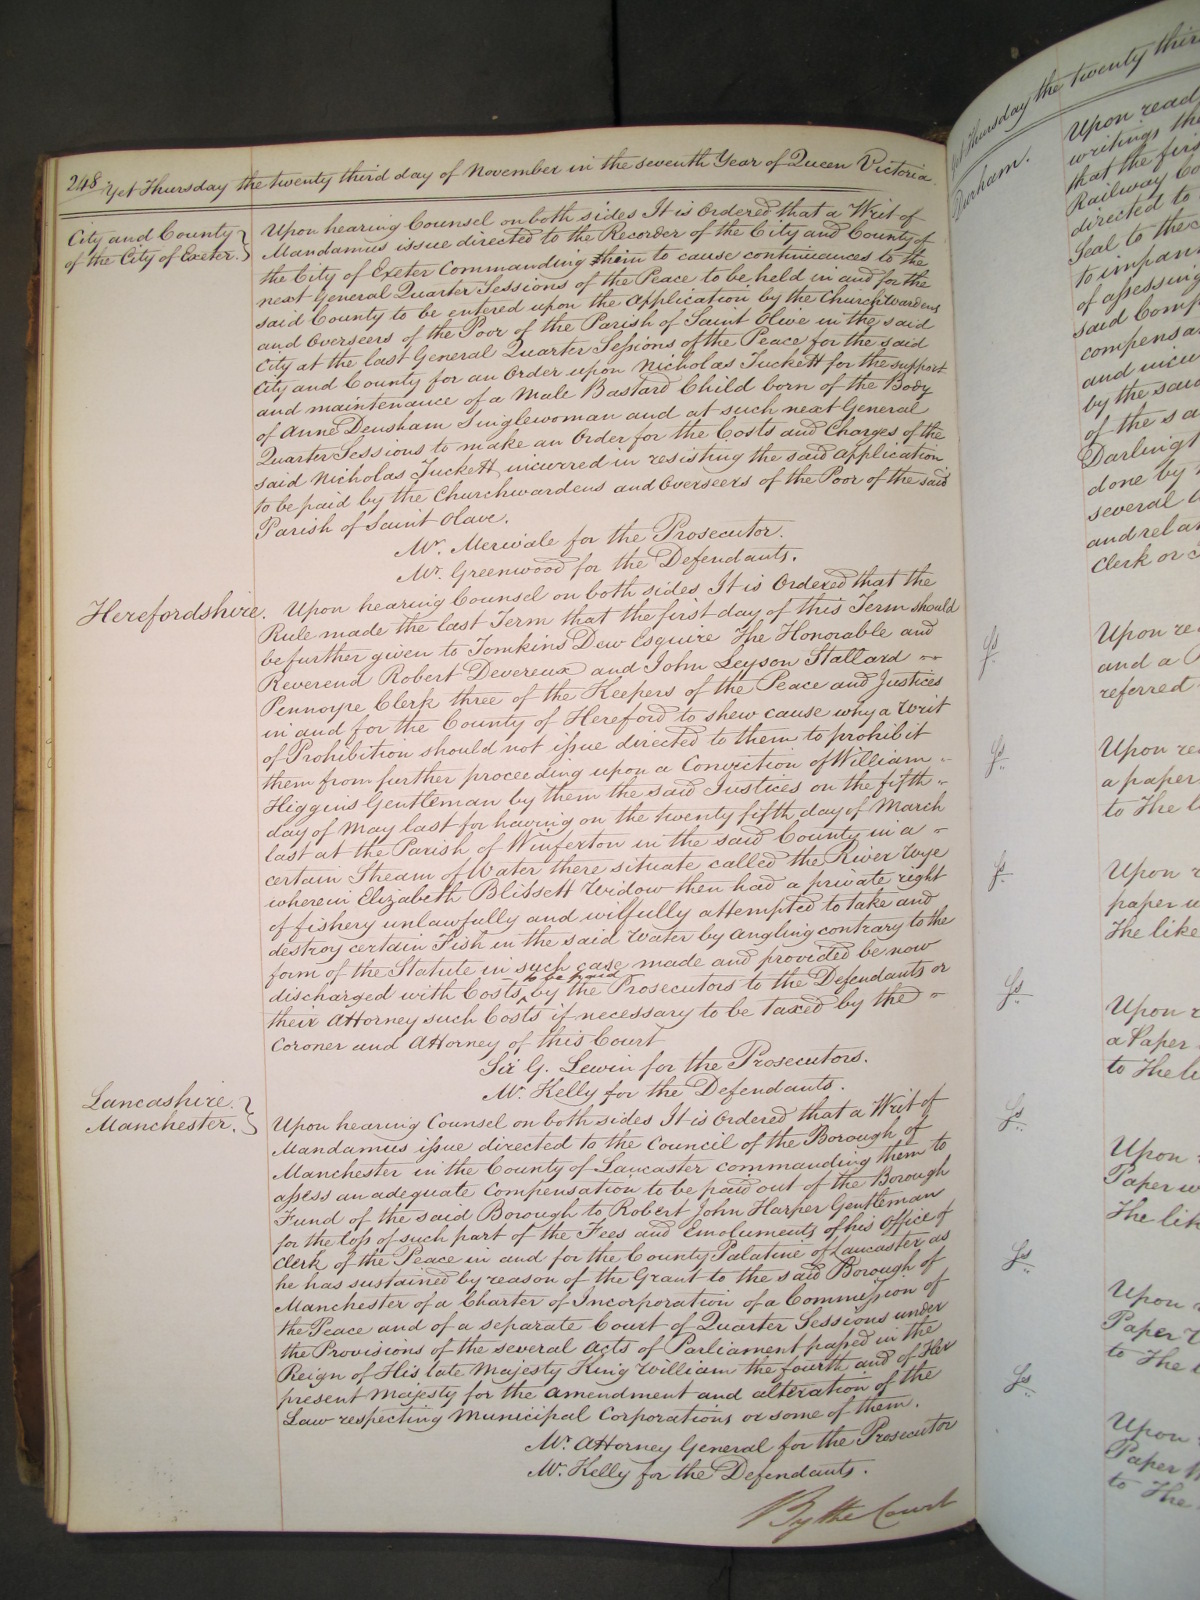 248 Yet Thursday the twenty third day of November in the seventh Year of Queen Victoria.
City and County
of the City of Exeter.
Upon hearing Counsel on both sides It is Ordered that a Writ of
Mandamus issue directed to the Recorder of the City and County of
the City of Exeter Commanding him to cause continuances to the
next General Quarter Sessions of the Peace to be held in and for the
said County to be entered upon the Application by the Churchwardens
and Overseers of the Poor of the Parish of Saint Olive in the said
City at the last General Quarter Sessions of the Peace for the said
City and County for an Order upon Nicholas Tuckett for the support
and maintenance of a Male Bastard Child born of the Body
of Anne Densham Singlewoman and at such next General
Quarter Sessions to make an Order for the Costs and Charges of the
said Nicholas Tuckett incurred in resisting the said Application
to be paid by the Churchwardens and Overseers of the Poor of the said
Parish of Saint Olave.
Mr. Merivale for the Prosecutor.
Mr. Greenwood for the Defendants.
Herefordshire.
Upon hearing Counsel on both sides It is Ordered that the
Rule made the last Term that the first day of this Term should
be further given to Tomkins Dew Esquire The Honorable and
Reverend Robert Devereux and John Leyson Stallard
Pennoyre Clerk three of the Keepers of the Peace and Justices
in and for the County of Hereford to shew cause why a Writ
of Prohibition should not issue directed to them to prohibit
them from further proceeding upon a Conviction of William
Higgins Gentleman by them the said Justices on the fifth
day of May last for having on the twenty fifth day of March
last at the Parish of Winforton in the said County in a
certain Stream of Water there situate called the River Wye
wherein Elizabeth Blissett Widow then had a private right
of fishery unlawfully and wilfully attempted to take and
destroy certain Fish in the said Water by Angling contrary to the
form of the Statute in such case made and provided be now
discharged with Costs to be paid by the Prosecutors to the Defendants or
their Attorney such Costs if necessary to be taxed by the
Coroner and Attorney of this Court
Sir G. Lewin for the Prosecutors.
Mr. Kelly for the Defendants.
Lancashire.
Manchester.
Upon hearing Counsel on both sides It is Ordered that a Writ of
Mandamus issue directed to the Council of the Borough of
Manchester in the County of Lancaster commanding them to
assess an adequate Compensation to be paid out of the Borough
Fund of the said Borough to Robert John Harper Gentleman
for the loss of such part of the Fees and Emoluments of his Office of
Clerk of the Peace in and for the County Palatine of Lancaster as
he has sustained by reason of the Grant to the said Borough of
Manchester of a Charter of Incorporation of a Commission of
the Peace and of a separate Court of Quarter Sessions under
the Provisions of the several Acts of Parliament passed in the
Reign of His late Majesty King William the fourth and of Her
present Majesty for the Amendment and alteration of the
Law respecting Municipal Corporations or some of them.
Mr. Attorney General for the Prosecutor
Mr. Kelly for the Defendants.
By the Court
Yet Thursday the twenty third
Durham.
Upon read
writings the
that the firs
Railway Co
directed to
Seal to the
to impan
of assessing
said Comp
compensa
and incu
by the said
of the sa
Darlingt
done by
several
and rela
Clerk or
Upon re
and a
referred
Upon rea
a paper
to The l
Upon r
paper w
The like
Upon r
a Paper
to The li
Upon
Paper w
The lik
Upon
Paper
to The
Upon
Paper
to The